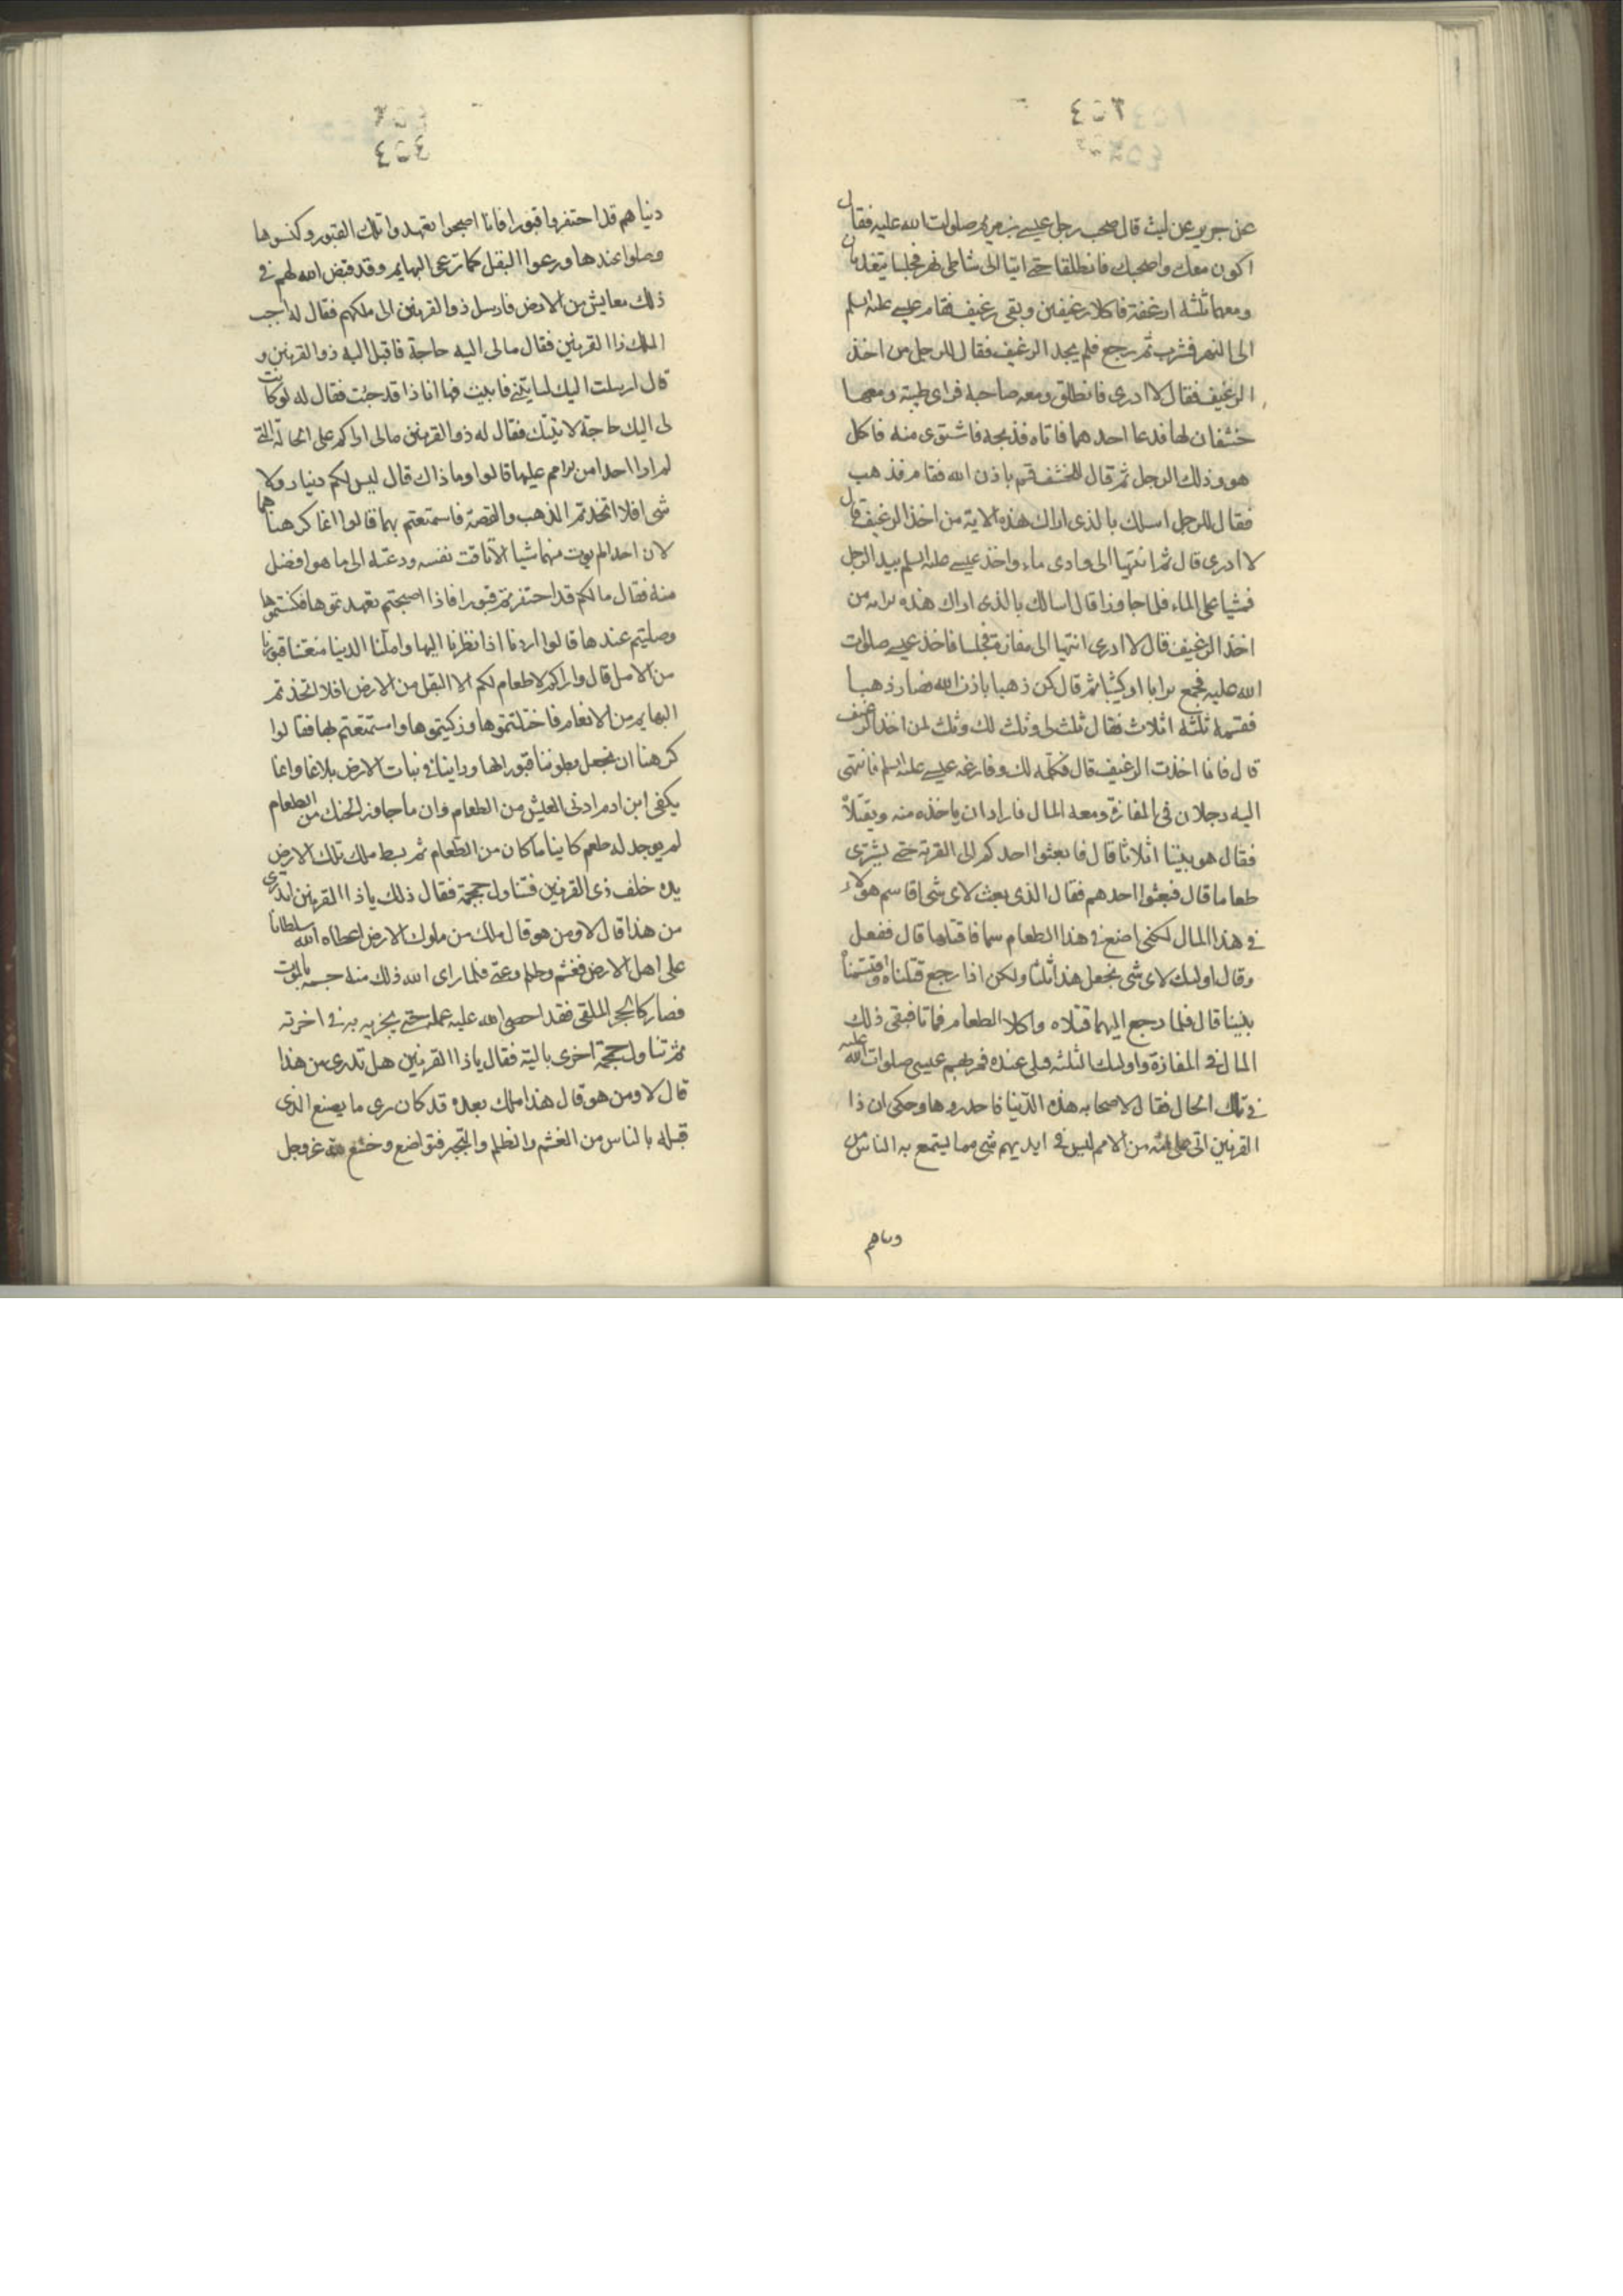 ٤٥٣
عن جرير عن ليث قال صحب رجل عيسى بن مريم صلوات الله عليه فقال
اكون معك واصحبك فانطلقا حتى اتيا الى شاطى نهر فجلسا يتغديان
ومعهما ثلثه ارغفة فاكلا رغيفين وبقى رغيف فقام عيسى عليه السلم
الى النهر فشرب ثم رجع فلم يجد الرغيف فقال للرجل من اخذ
الرغيف فقال لا ادرى فانطلق ومعه صاحبه فراى ظبية ومعها
خشفان لها فدعا احدهما فاتاه فذبحه فاشتوى منه فاكل
هو وذلك الرجل ثم قال للخشف قم باذن الله فقام فذهب
فقال للرجل اسلك بالذى اراك هذه الاية من اخذ الرغيف قال
لا ادرى قال ثم انتهيا الى وادى ماء واخذ عيسى عليه السلم بيد الرجل
فمشيا على الماء فلما جاوزا قال اسالك بالذى اراك هذه من
اخذ الرغيف قال لا ادرى انتهيا الى مفازة فجلسا فاخذ عيسى صلوات
الله عليه فجمع ترابا او كثيبا ثم قال كن ذهبا باذن الله فصار ذهبا
فقسمه ثلثه اثلاث فقال ثلث لى وثلث لك وثلث لمن اخذ الرغيف
قال فانا اخذت الرغيف قال فكله لك وفارغه عيسى عليه السلم فانتهى
اليه رجلان فى المفازة ومعه المال فارادا ان ياخذه منه ويقتلاه
فقال هو بيننا اثلاثا قال فابعثوا احدكم الى القرية حتى يشترى
طعاما قال فبعثوا احدهم فقال الذى بعث لاى شى اقاسم هولاء
فى هذا المال لكنى اضع فى هذا الطعام سما فاقتلهما قال ففعل
وقال اوليك لاى شى نجعل هذا ثلثا ولكن اذا رجع قتلناه واقتسمناه
بيننا قال فلما رجع اليهما قتلاه واكلا الطعام فماتا فبقى ذلك
المال فى المفازة واوليك الثلثه قتلى عنده فمر بهم عيسى صلوات الله عليه
فى تلك الحال فقال لاصحابه هذه الدنيا فاحذروها وحكى ان ذا
القرنين اتى على امة من الامم ليس فى ايديهم شى مما يستمتع به الناس من
دنياهم
٤٥٤
دنياهم قد احتفروا قبورا فاذا اصبحوا تعهدوا تلك القبور وكنسوها
وصلوا عندها ورعوا البقل كما ترعى البهايم وقد قيض الله لهم فى
ذلك معايش من الارض فارسل ذو القرنين الى ملكهم فقال له اجب
الملك ذا القرنين فقال مالى اليه حاجة فاقبل اليه ذو القرنين و
قال ارسلت اليك لتاتينى فابيت فها انا ذا قد جيت فقال له لو كانت
لى اليك حاجة لاتيتك فقال له ذو القرنين مالى اراكم على الحالة التى
لم ار احدا من الامم عليها قالوا وما ذاك قال ليس لكم دنيا ولا
شى افلا اتخذتم الذهب والفضة فاستمتعتم بهما قالوا انما كرهناهما
لان احدا لم يوت منهما شيا الا تاقت نفسه ودعته الى ما هو افضل
منه فقال ما لكم قد احتفرتم قبورا فاذا اصبحتم تعهدتموها فكنستموها
وصليتم عندها قالوا اردنا اذا نظرنا اليها واملنا الدنيا منعتنا قبورنا
من الامل قال واراكم لا طعام لكم الا البقل من الارض افلا اتخذتم
البهايم من الانعام فاحتلبتموها وذكيتموها واستمتعتم بها فقالوا
كرهنا ان نجعل بطوننا قبورا لها وراينا فى نبات الارض بلاغا وانما
يكفى ابن ادم ادنى العيش من الطعام وان ما جاوز الحنك من الطعام
لم يوجد له طعم كاينا ما كان من الطعام ثم بسط ملك تلك الارض
يده خلف ذى القرنين فتناول جمجمة فقال ذلك يا ذا القرنين اتدرى
من هذا قال لا ومن هو قال ملك من ملوك الارض اعطاه الله سلطانا
على اهل الارض فغشم وظلم وعتى فلما راى الله ذلك منه حسمه بالموت
فصار كالحجر الملقى فقد احصى الله عليه عمله حتى يجزيه به فى اخرته
ثم تناول جمجمة اخرى بالية فقال يا ذا القرنين هل تدرى من هذا
قال لا ومن هو قال هذا ملك بعده قد كان رى ما يصنع الذى
قبله بالناس من الغشم والظلم والتجبر فتواضع وخشع لله عز وجل